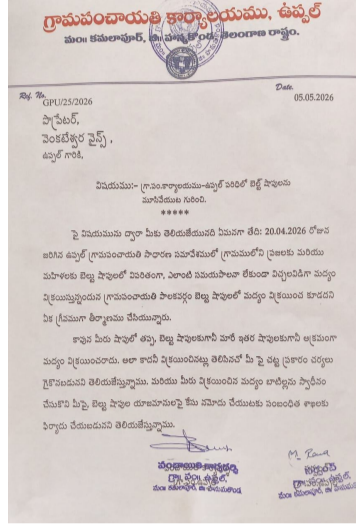 గ్రామపంచాయతి కార్యాలయము, ఉప్పల్
మం॥ కమలాపూర్, జి॥ హన్మకొండ, తెలంగాణ రాష్ట్రం.
Ref. No. Date.
GPU/25/2026 05.05.2026
ప్రొప్రేటర్,
వెంకటేశ్వర వైన్స్,
ఉప్పల్ గారికి,
విషయము:- గ్రా.పం.కార్యాలయము-ఉప్పల్ పరిధిలో బెల్ట్ షాపులను
మూసివేయుట గురించి.
*****
పై విషయమును ద్వారా మీకు తెలియజేయునది ఏమనగా తేది: 20.04.2026 రోజున
జరిగిన ఉప్పల్ గ్రామపంచాయతి సాధారణ సమావేశములో గ్రామములోని ప్రజలకు మరియు
మహిళలకు బెల్టు షాపులలో విపరీతంగా, ఎలాంటి సమయపాలనా లేకుండా విచ్చలవిడిగా మద్యం
విక్రయిస్తున్నందున గ్రామపంచాయతి పాలకవర్గం బెల్టు షాపులలో మద్యం విక్రయించ కూడదని
ఏక గ్రీవముగా తీర్మాణము చేసియున్నారు.
కావున మీరు షాపులో తప్ప, బెల్టు షాపులకుగానీ మారే ఇతర షాపులకుగానీ అక్రమంగా
మద్యం విక్రయించరాదు. అలా కాదని విక్రయించినట్లు తెలిసినచో మీ పై చట్ట ప్రకారం చర్యలు
గైకొనబడునని తెలియజేస్తున్నాము. మరియు మీరు విక్రయించిన మద్యం బాటిల్లను స్వాధీనం
చేసుకొని మీపై, బెల్టు షాపుల యాజమానులపై కేసు నమోదు చేయుటకు సంబంధిత శాఖలకు
ఫిర్యాదు చేయబడునని తెలియజేస్తున్నాము.
పంచాయితి కార్యదర్శి
గ్రా॥ పం॥ ఉప్పల్,
మం॥ కమలాపూర్, జి॥ హనుమకొండ
సర్పంచ్
గ్రా॥ పం॥ ఉప్పల్,
మం॥ కమలాపూర్, జి॥ హనుమకొండ